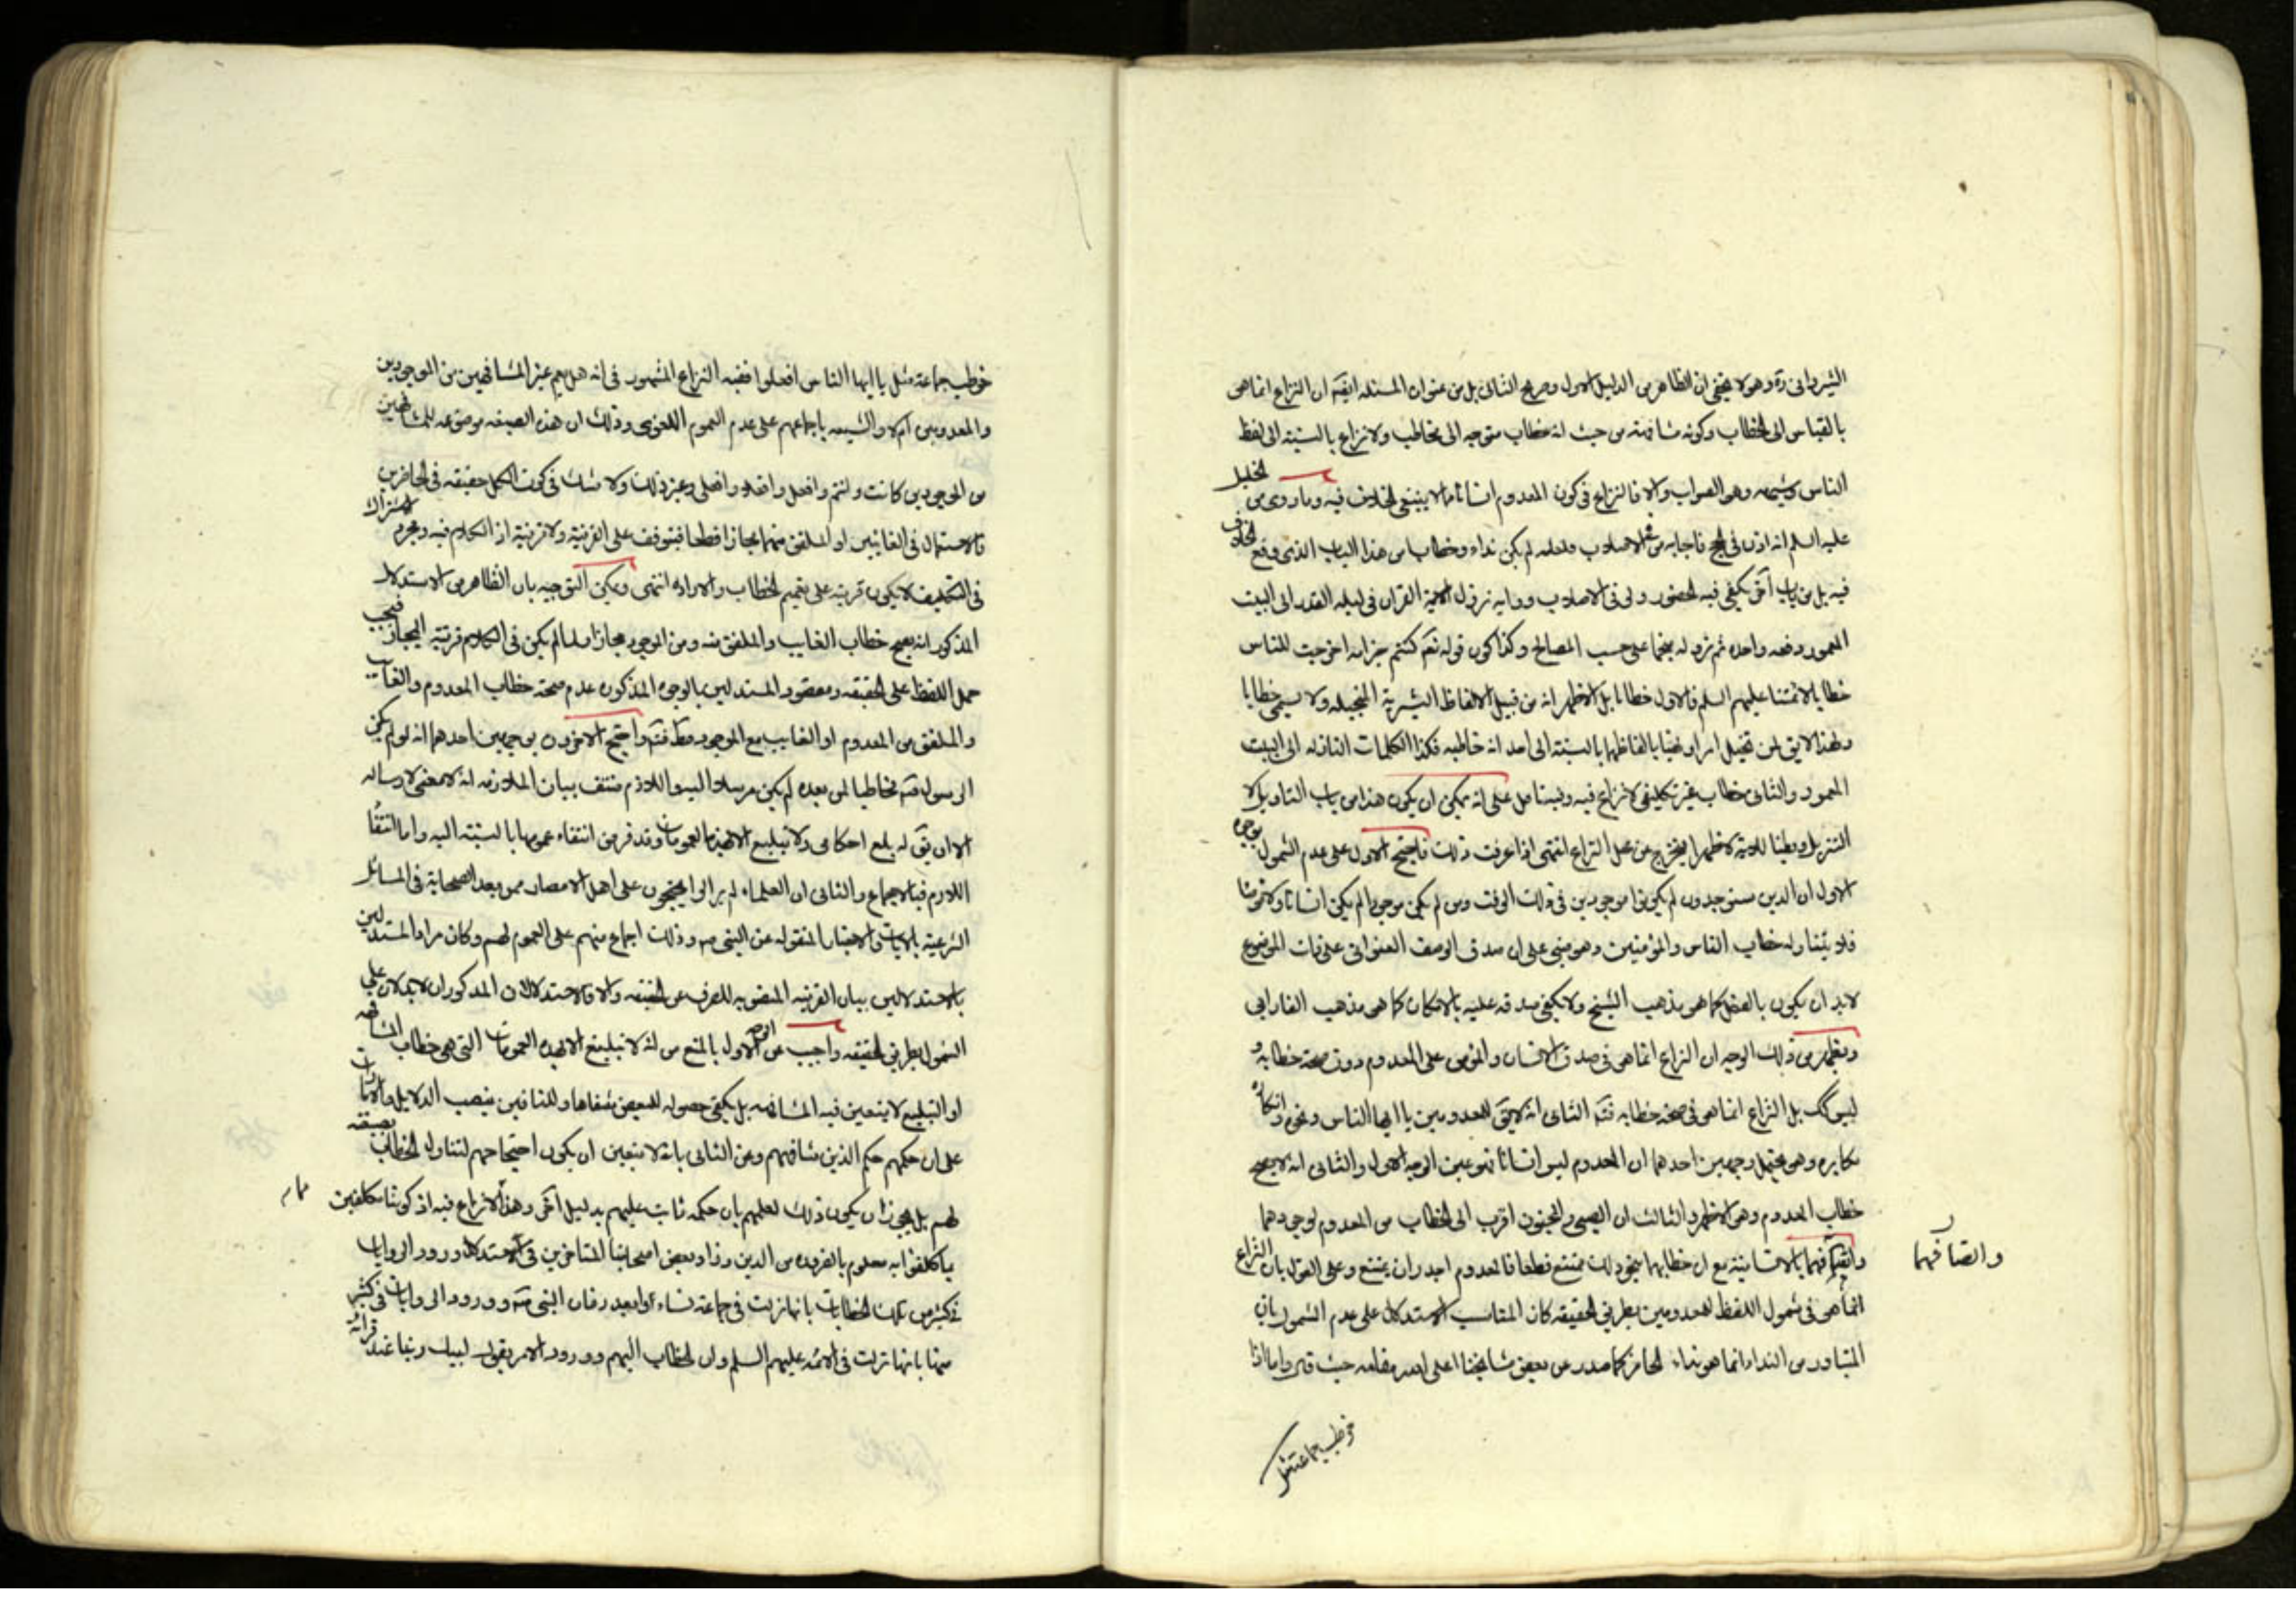 الشيرواني ره وهو لا يخفى ان الظاهر من الدليل الاول وصريح الثاني بل من عنوان المسئله ايضا ان النزاع انما هو
بالقياس الى الخطاب وكونه مشافهة من حيث انه خطاب متوجه الى مخاطب ولا نزاع بالنسبة الى لفظ
الناس وشبهه وهو الصواب والا فالنزاع في كون المعدوم انسانا مما لا ينبغي الخلاف فيه وما روى من الخليل
عليه السلم انه اذن في الحج فاجابه من في الاصلاب فلعله لم يكن نداء وخطاب من هذا الباب الذى وقع الخلاف
فيه بل من باب آخر يكفي فيه الحضور ولو في الاصلاب وروايه نزول القران في ليله القدر الى البيت
المعمور دفعه واحده ثم نزوله نجما على حسب المصالح وكذا كون قوله تعـ كنتم خير امه اخرجت للناس
خطابا لائمتنا عليهم السلم فالاول خطابا بل الاظهر انه من قبيل الالفاظ البشرية المتخيله ولا يسمى خطابا
ولهذا لا يق لمن تخيل امرا ونهيا بالفاظهما بالنسبة الى احد انه خاطبه فكذا الكلمات النازله الى البيت
المعمور والثاني خطاب غير تكليفي لا نزاع فيه وليتامل على انه يمكن ان يكون هذا من باب التاويل لا
التنزيل وبطنا للاية لا ظهرا فيخرج عن محل النزاع انتهى اذا عرفت ذلك فاحتج الاول على عدم الشمول بوجوه
الاول ان الذين سيوجدون لم يكونوا موجودين في ذلك الوقت ومن لم يكن موجودا لم يكن انسانا ولا مؤمنا
فلا يتناوله خطاب الناس والمؤمنين وهو مبنى على ان صدق الوصف العنواني على ذات الموضوع
لابد ان يكون بالفعل كما هو مذهب الشيخ ولا يكفي صدقه عليه بالامكان كما هو مذهب الفارابي
ويظهر من ذلك الوجه ان النزاع انما هو في صدق الانسان والمؤمن على المعدوم دون صحة خطابه و
ليس كك بل النزاع انما هو في صحة خطابه فتـ الثاني انه لا يق للمعدومين يا ايها الناس ونحوه وانكاره
مكابره وهو يحتمل وجهين احدهما ان المعدوم ليس انسانا فهو عين الوجه الاول والثاني انه لا يصح
خطاب المعدوم وهو الاظهر والثالث ان الصبي والمجنون اقرب الى الخطاب من المعدوم لوجودهما
واتصافهما بالانسانية مع ان خطابهما بنحو ذلك ممتنع قطعا فالمعدوم اجدر ان يمتنع وعلى القول بان النزاع
واتصافهما
انما هو في شمول اللفظ للمعدومين بطريق الحقيقه كان المناسب الاستدلال على عدم الشمول بان
المتبادر من النداء انما هو نداء الحاضر كما صدر عن بعض مشايخنا اعلى الله مقامه حيث قال واما اذا
خوطب جماعة مثل
خوطب جماعة مثل يا ايها الناس افعلوا ففيه النزاع المشهور في انه هل يعم غير المشافهين من الموجودين
والمعدومين ام لا والشيعه باجماعهم على عدم العموم اللغوى وذلك ان هذه الصيغه موضوعه للمشافهين
من الموجودين كانت وانتم وافعل وافعلوا وافعلى وغير ذلك ولا شك في كون الكل حقيقه في الحاضرين
فالاستعمال في الغائبين او الملفق منهما مجازا قطعا فيتوقف على القرينة ولا قرينة اذ الكلام فيه ومجرد الاشتراك
في التكليف لا يكون قرينه على تعميم الخطاب والارادة انتهى ويمكن التوجيه بان الظاهر من الاستدلال
المذكور انه يصح خطاب الغايب والملفق منه ومن الموجود مجازا ولما لم يكن في الكلام قرينة المجاز فيجب
حمل اللفظ على الحقيقه ومقصود المستدلين بالوجوه المذكوره عدم صحة خطاب المعدوم والغايب
والملفق من المعدوم او الغايب مع الموجود مطـ فتـ واحتج الاخرون بوجهين احدهما انه لو لم يكن
الرسول صـ مخاطبا لمن بعده لم يكن مرسلا اليه واللازم منتف بيان الملازمه انه لا معنى لارساله
الا ان يق له بلغ احكامى ولا تبليغ الا بهذه العمومات وقد فرض انتفاء عمومها بالنسبة اليه واما انتفاء
اللازم فبالاجماع والثاني ان العلماء لم يزالوا يحتجون على اهل الامصار ممن بعد الصحابة في المسائل
الشرعية بالايات والاخبار المنقوله عن النبي صـ وذلك اجماع منهم على العموم لهم وكان مراد المستدلين
بالاستدلالين بيان القرينه المنصوبه للصرف عن الحقيقه والا فالاستدلالان المذكوران لا يدلان على
الشمول بطريق الحقيقه واجيب عن الوجه الاول بالمنع من انه لا تبليغ الا بهذه العمومات التي هي خطاب المشافهه
او التبليغ لا يتعين فيه المشافهه بل يكفي حصوله للبعض شفاها وللباقين بنصب الدلايل والامارات
على ان حكمهم حكم الذين شافههم وعن الثاني بانه لا يتعين ان يكون احتجاجهم لتناول الخطاب بصيغته
لهم بل يجوز ان يكون ذلك لعلمهم بان حكمه ثابت عليهم بدليل آخر وهذا لا نزاع فيه اذ كوننا مكلفين
بما كلفوا به معلوم بالضرورة من الدين وزاد بعض اصحابنا المتاخرين في الاستدلال ورود الروايات
في كثير من تلك الخطابات بانها نزلت في جماعة نشاءوا بعد زمان النبي صـ وورود الروايات في كثير
منها بانها نزلت في الائمه عليهم السلم وان الخطاب اليهم وورود الامر بقول لبيك ربنا عند قرائة